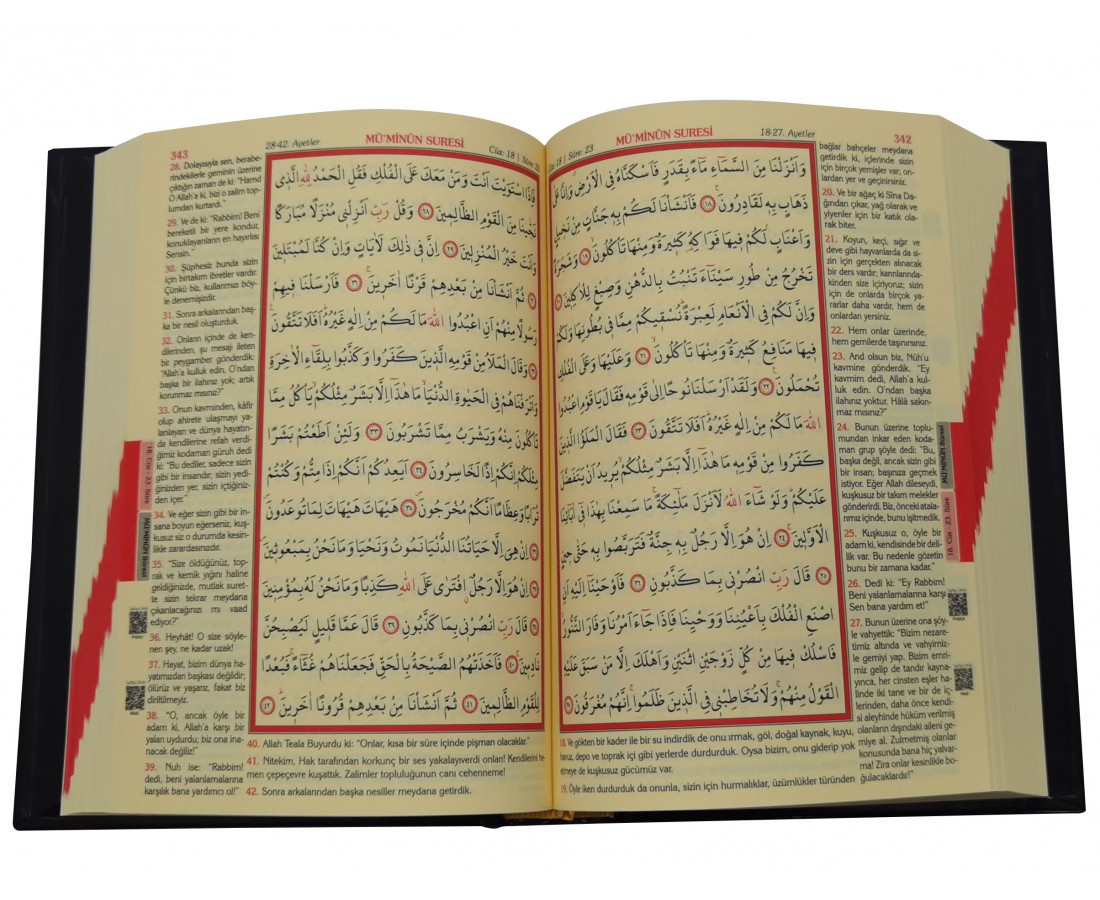 18 | Sûre: 23 MÜ'MİNÛN SURESİ 18-27. Ayetler 342
وَاَنْزَلْنَا مِنَ السَّمَاۤءِ مَاۤءً بِقَدَرٍ فَاَسْكَنَّاهُ فِي الْاَرْضِ وَاِنَّا عَلٰى
ذَهَابٍ بِهِ لَقَادِرُونَ ١٨ فَاَنْشَأْنَا لَكُمْ بِهِ جَنَّاتٍ مِنْ نَخِيلٍ
وَاَعْنَابٍ لَكُمْ فِيهَا فَوَاكِهُ كَثِيرَةٌ وَمِنْهَا تَأْكُلُونَ ١٩ وَشَجَرَةً
تَخْرُجُ مِنْ طُورِ سَيْنَاۤءَ تَنْبُتُ بِالدُّهْنِ وَصِبْغٍ لِلْاٰكِلِينَ ٢٠
وَاِنَّ لَكُمْ فِي الْاَنْعَامِ لَعِبْرَةً نُسْقِيكُمْ مِمَّا فِي بُطُونِهَا وَلَكُمْ
فِيهَا مَنَافِعُ كَثِيرَةٌ وَمِنْهَا تَأْكُلُونَ ٢١ وَعَلَيْهَا وَعَلَى الْفُلْكِ
تُحْمَلُونَ ٢٢ وَلَقَدْ اَرْسَلْنَا نُوحًا اِلٰى قَوْمِهِ فَقَالَ يَا قَوْمِ اعْبُدُوا
اللّٰهَ مَا لَكُمْ مِنْ اِلٰهٍ غَيْرُهُ اَفَلَا تَتَّقُونَ ٢٣ فَقَالَ الْمَلَؤُا الَّذِينَ
كَفَرُوا مِنْ قَوْمِهِ مَا هٰذَاۤ اِلَّا بَشَرٌ مِثْلُكُمْ يُرِيدُ اَنْ يَتَفَضَّلَ
عَلَيْكُمْ وَلَوْ شَاۤءَ اللّٰهُ لَاَنْزَلَ مَلٰۤئِكَةً مَا سَمِعْنَا بِهٰذَا فِي اٰبَاۤئِنَا
الْاَوَّلِينَ ٢٤ اِنْ هُوَ اِلَّا رَجُلٌ بِهِ جِنَّةٌ فَتَرَبَّصُوا بِهِ حَتّٰى حِينٍ
٢٥ قَالَ رَبِّ انْصُرْنِي بِمَا كَذَّبُونِ ٢٦ فَاَوْحَيْنَاۤ اِلَيْهِ اَنِ
اصْنَعِ الْفُلْكَ بِاَعْيُنِنَا وَوَحْيِنَا فَاِذَا جَاۤءَ اَمْرُنَا وَفَارَ التَّنُّورُ
فَاسْلُكْ فِيهَا مِنْ كُلٍّ زَوْجَيْنِ اثْنَيْنِ وَاَهْلَكَ اِلَّا مَنْ سَبَقَ عَلَيْهِ
الْقَوْلُ مِنْهُمْ وَلَا تُخَاطِبْنِي فِي الَّذِينَ ظَلَمُوا اِنَّهُمْ مُغْرَقُونَ ٢٧
18. Ve gökten bir kader ile bir su indirdik de onu ırmak, göl, doğal kaynak, kuyu,
havuz, depo ve toprak içi gibi yerlerde durdurduk. Oysa bizim, onu giderip yok
etmeye de kuşkusuz gücümüz var.
19. Öyle iken durdurduk da onunla, sizin için hurmalıklar, üzümlükler türünden
bağlar bahçeler meydana
getirdik ki, içlerinde sizin
için birçok yemişler var; on-
lardan yer ve geçinirsiniz.
20. Ve bir ağaç ki Sîna Da-
ğından çıkar, yağ olarak ve
yiyenler için bir katık olarak
biter.
21. Koyun, keçi, sığır ve
deve gibi hayvanlarda da si-
zin için gerçekten alınacak
bir ders vardır; karınlarında-
kinden size içiriyoruz; sizin
için de onlarda birçok ya-
rarlar daha vardır, hem de
onlardan yersiniz.
22. Hem onlar üzerinde,
hem gemilerde taşınırsınız.
23. And olsun biz, Nûh'u
kavmine gönderdik. "Ey
kavmim dedi, Allah'a kulluk
edin, O'ndan başka
ilahınız yoktur. Hâlâ sakın-
maz mısınız?"
24. Bunun üzerine toplu-
mundan inkar eden koda-
man grup şöyle dedi: "Bu,
başka değil, ancak sizin gibi
bir insan; başınıza geçmek
istiyor. Eğer Allah dileseydi,
kuşkusuz bir takım melekler
gönderirdi. Biz, önceki atala-
rımız içinde, bunu işitmedik.
25. Kuşkusuz o, öyle bir
adam ki, kendisinde bir deli-
lik var. Bu nedenle gözetin
bunu bir zamana kadar."
26. Dedi ki: "Ey Rabbim!
Beni yalanlamalarına karşı
Sen bana yardım et!"
27. Bunun üzerine ona şöy-
le vahyettik: "Bizim nezare-
timiz altında ve vahyimiz-
le gemiyi yap. Bizim emri-
miz gelip de tandır kayna-
yınca, her cinsten eşler ha-
linde iki tane ve bir de iç-
lerinden, daha önce kendi-
si aleyhinde hüküm verilmiş
olanların dışındaki aileni ge-
miye al. Zulmetmiş olanlar
konusunda bana hiç yalvar-
ma! Zira onlar kesinlikle bo-
ğulacaklardır!"
MÜ'MİNÛN Sûresi
18. Cüz - 23. Sûre
343 28-42. Ayetler MÜ'MİNÛN SURESİ Cüz: 18 | Sûre: 23
فَاِذَا اسْتَوَيْتَ اَنْتَ وَمَنْ مَعَكَ عَلَى الْفُلْكِ فَقُلِ الْحَمْدُ لِلّٰهِ الَّذِي
نَجّٰينَا مِنَ الْقَوْمِ الظَّالِمِينَ ٢٨ وَقُلْ رَبِّ اَنْزِلْنِي مُنْزَلًا مُبَارَكًا
وَاَنْتَ خَيْرُ الْمُنْزِلِينَ ٢٩ اِنَّ فِي ذٰلِكَ لَاٰيَاتٍ وَاِنْ كُنَّا لَمُبْتَلِينَ
٣٠ ثُمَّ اَنْشَأْنَا مِنْ بَعْدِهِمْ قَرْنًا اٰخَرِينَ ٣١ فَاَرْسَلْنَا فِيهِمْ
رَسُولًا مِنْهُمْ اَنِ اعْبُدُوا اللّٰهَ مَا لَكُمْ مِنْ اِلٰهٍ غَيْرُهُ اَفَلَا تَتَّقُونَ
٣٢ وَقَالَ الْمَلَاُ مِنْ قَوْمِهِ الَّذِينَ كَفَرُوا وَكَذَّبُوا بِلِقَاۤءِ الْاٰخِرَةِ
وَاَتْرَفْنَاهُمْ فِي الْحَيٰوةِ الدُّنْيَا مَا هٰذَاۤ اِلَّا بَشَرٌ مِثْلُكُمْ يَأْكُلُ مِمَّا
تَأْكُلُونَ مِنْهُ وَيَشْرَبُ مِمَّا تَشْرَبُونَ ٣٣ وَلَئِنْ اَطَعْتُمْ بَشَرًا
مِثْلَكُمْ اِنَّكُمْ اِذًا لَخَاسِرُونَ ٣٤ اَيَعِدُكُمْ اَنَّكُمْ اِذَا مِتُّمْ وَكُنْتُمْ
تُرَابًا وَعِظَامًا اَنَّكُمْ مُخْرَجُونَ ٣٥ هَيْهَاتَ هَيْهَاتَ لِمَا تُوعَدُونَ
٣٦ اِنْ هِيَ اِلَّا حَيَاتُنَا الدُّنْيَا نَمُوتُ وَنَحْيَا وَمَا نَحْنُ بِمَبْعُوثِينَ
٣٧ اِنْ هُوَ اِلَّا رَجُلٌ افْتَرٰى عَلَى اللّٰهِ كَذِبًا وَمَا نَحْنُ لَهُ بِمُؤْمِنِينَ
٣٨ قَالَ رَبِّ انْصُرْنِي بِمَا كَذَّبُونِ ٣٩ قَالَ عَمَّا قَلِيلٍ لَيُصْبِحُنَّ
نَادِمِينَ ٤٠ فَاَخَذَتْهُمُ الصَّيْحَةُ بِالْحَقِّ فَجَعَلْنَاهُمْ غُثَاۤءً فَبُعْدًا
لِلْقَوْمِ الظَّالِمِينَ ٤١ ثُمَّ اَنْشَأْنَا مِنْ بَعْدِهِمْ قُرُونًا اٰخَرِينَ ٤٢
28. Dolayısıyla sen, berabe-
rindekilerle geminin üzerine
çıktığın zaman de ki: "Hamd
O Allah'a ki, bizi o zalim top-
lumdan kurtardı."
29. Ve de ki: "Rabbim! Beni
bereketli bir yere kondur,
konuklayanların en hayırlısı
Sensin."
30. Şüphesiz bunda sizin
için birtakım ibretler vardır.
Çünkü biz, kullarımızı böy-
le denemişizdir.
31. Sonra arkalarından baş-
ka bir nesil oluşturduk.
32. Onların içinde de ken-
dilerinden, şu mesajı ileten
bir peygamber gönderdik:
"Allah'a kulluk edin, O'ndan
başka bir ilahınız yok; artık
korunmaz mısınız?"
33. Onun kavminden, kâfir
olup ahirete ulaşmayı ya-
lanlayan ve dünya hayatın-
da kendilerine refah verdi-
ğimiz kodaman güruh dedi
ki: "Bu dediler, sadece sizin
gibi bir insandır; sizin yedi-
ğinizden yer, sizin içtiğiniz-
den içer."
34. Ve eğer sizin gibi bir in-
sana boyun eğerseniz, kuş-
kusuz siz o durumda kesin-
likle zarardasınızdır.
35. "Size öldüğünüz, top-
rak ve kemik yığını haline
geldiğinizde, mutlak suret-
te sizin tekrar meydana
çıkarılacağınızı mı vaad
ediyor?"
36. Heyhât! O size söyle-
nen şey, ne kadar uzak!
37. Hayat, bizim dünya ha-
yatımızdan başkası değildir;
ölürüz ve yaşarız, fakat biz
diriltilmeyiz.
38. "O, ancak öyle bir
adam ki, Allah'a karşı bir
yalan uydurdu; biz ona ina-
nacak değiliz!"
39. Nuh ise: "Rabbim!
dedi, beni yalanlamalarına
karşılık bana yardımcı ol!"
40. Allah Teala Buyurdu ki: "Onlar, kısa bir süre içinde pişman olacaklar."
41. Nitekim, Hak tarafından korkunç bir ses yakalayıverdi onları! Kendilerini he-
men çepeçevre kuşattık. Zalimler topluluğunun canı cehenneme!
42. Sonra arkalarından başka nesiller meydana getirdik.
18. Cüz - 23. Sûre
MÜ'MİNÛN Sûresi